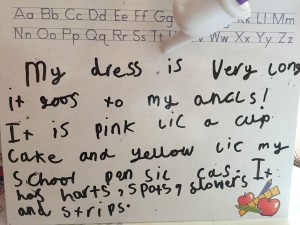 Aa Bb Cc Dd Ee Ff Gg Kk Ll Mm
Nn Oo Pp Qq Rr Ss Tt Vv Ww Xx Yy Zz
My dress is Very long
it goos to my ancls!
It is pink lic a cup
cake and yellow lic my
School pen sic cas. It
has harts, spots, flowers
and strips.